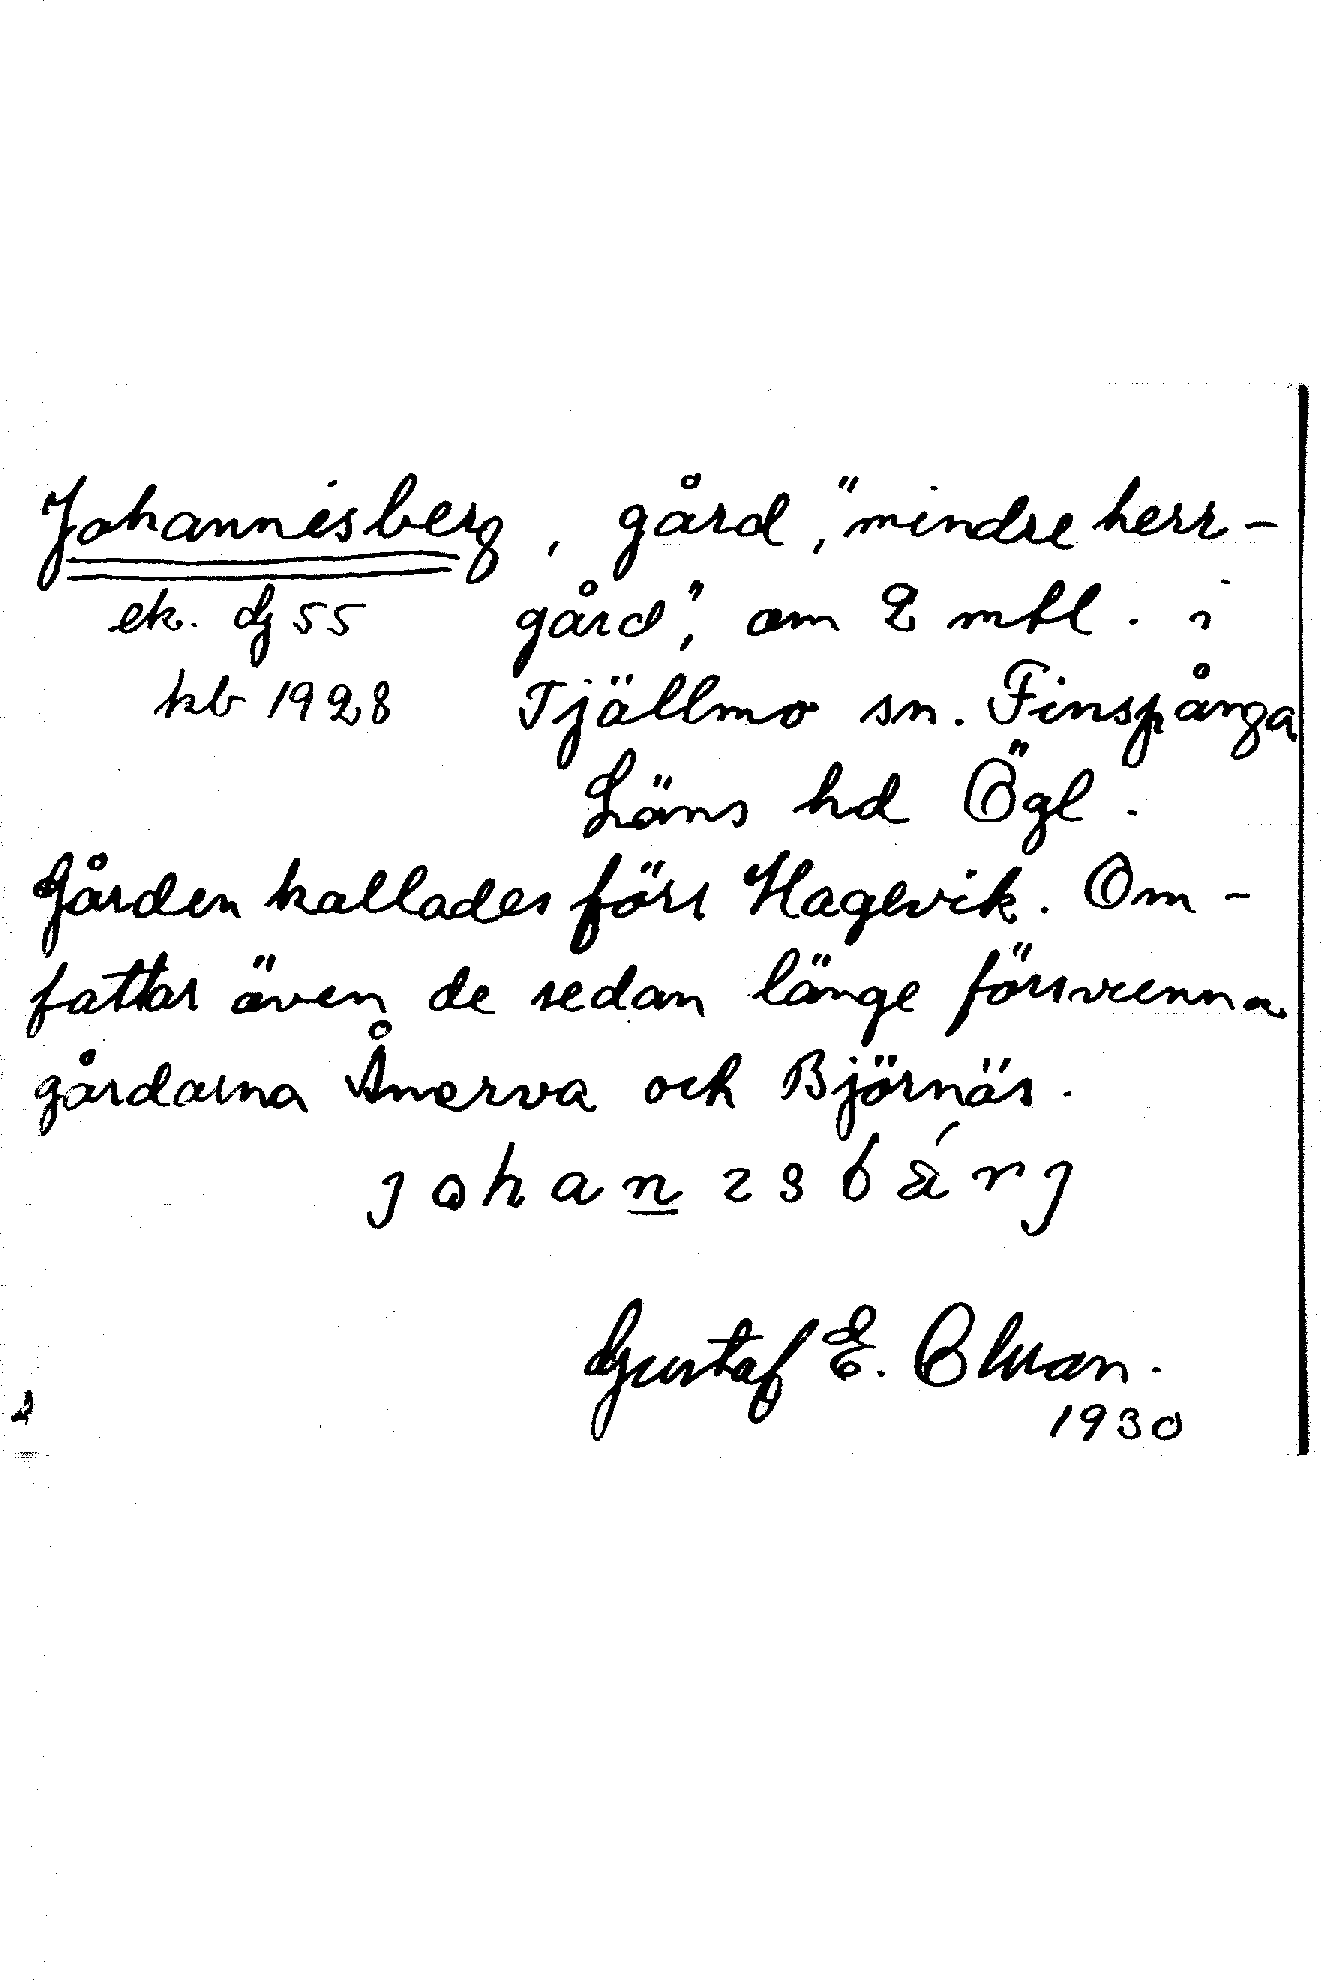 Johannisberg, gård, "mindre herr-
ek. dj 55 gård", om 2 mtl. i
kb 1928 Tjällmo sn. Finspånga
Läns hd Ögl.
Gården kallades förr Hagevik. Om-
fattar även de sedan länge försvunna
gårdarna Ånerva och Björnäs.
johan
Gustaf E.
1930